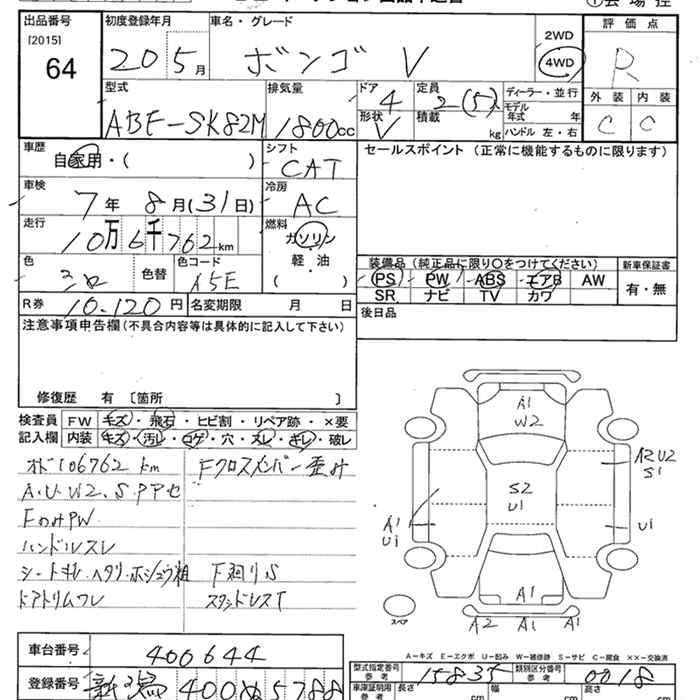 出品番号
[2015]
64
初度登録年月
20 5月
車名・グレード
ボンゴ V
2WD
4WD
評価点
R
外装 内装
C C
型式
ABF-SK82M
排気量
1800cc
ドア
4
形状
V
定員
2(5)人
積載
kg
ディーラー・並行
モデル
年式 年
ハンドル 左・右
車歴
自家用・( )
シフト
CAT
セールスポイント (正常に機能するものに限ります)
車検
7年 8月(31日)
冷房
AC
走行
10万6千762km
燃料
ガソリン
軽・油
( )
色
シロ
色替
色コード
A5E
装備品(純正品に限り〇をつけてください)
新車保証書
PS PW ABS エアB AW
SR ナビ TV カワ
有・無
R券
10,120円
名変期限 月 日
後日品
注意事項申告欄(不具合内容等は具体的に記入して下さい)
修復歴 有 〔箇所 〕
検査員
記入欄
FW キズ・飛石・ヒビ割・リペア跡・×要
内装 キズ・汚レ・コゲ・穴・スレ・キレ・破レ
オド106762km
Fクロスメンバー歪ミ
A.U.W2.S.PPセ
FのみPW
ハンドルスレ
シートキレ・ヘタリ・ホシュウ粗
F廻りS
ドアトリムワレ
スタンドレスT
A1
W2
A2 U2
S1
S2
U1
A1
U1
U1
A1
A2 A1 A1
スペア
A-キズ E-エクボ U-凹み W-補修跡 S-サビ C-腐食 XX-交換済
車台番号
400644
登録番号
新潟 400 ぬ 5788
型式指定番号
参考
15835
類別区分番号
参考
0018
車庫証明用
参考
長さ
cm
幅
cm
高さ
cm